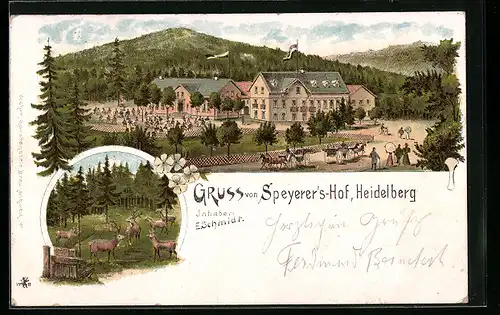 GRUSS VON SPEYERER'S-HOF, HEIDELBERG
Inhaber:
E. Schmidt.
Herzlichen Gruß
Ferdinand